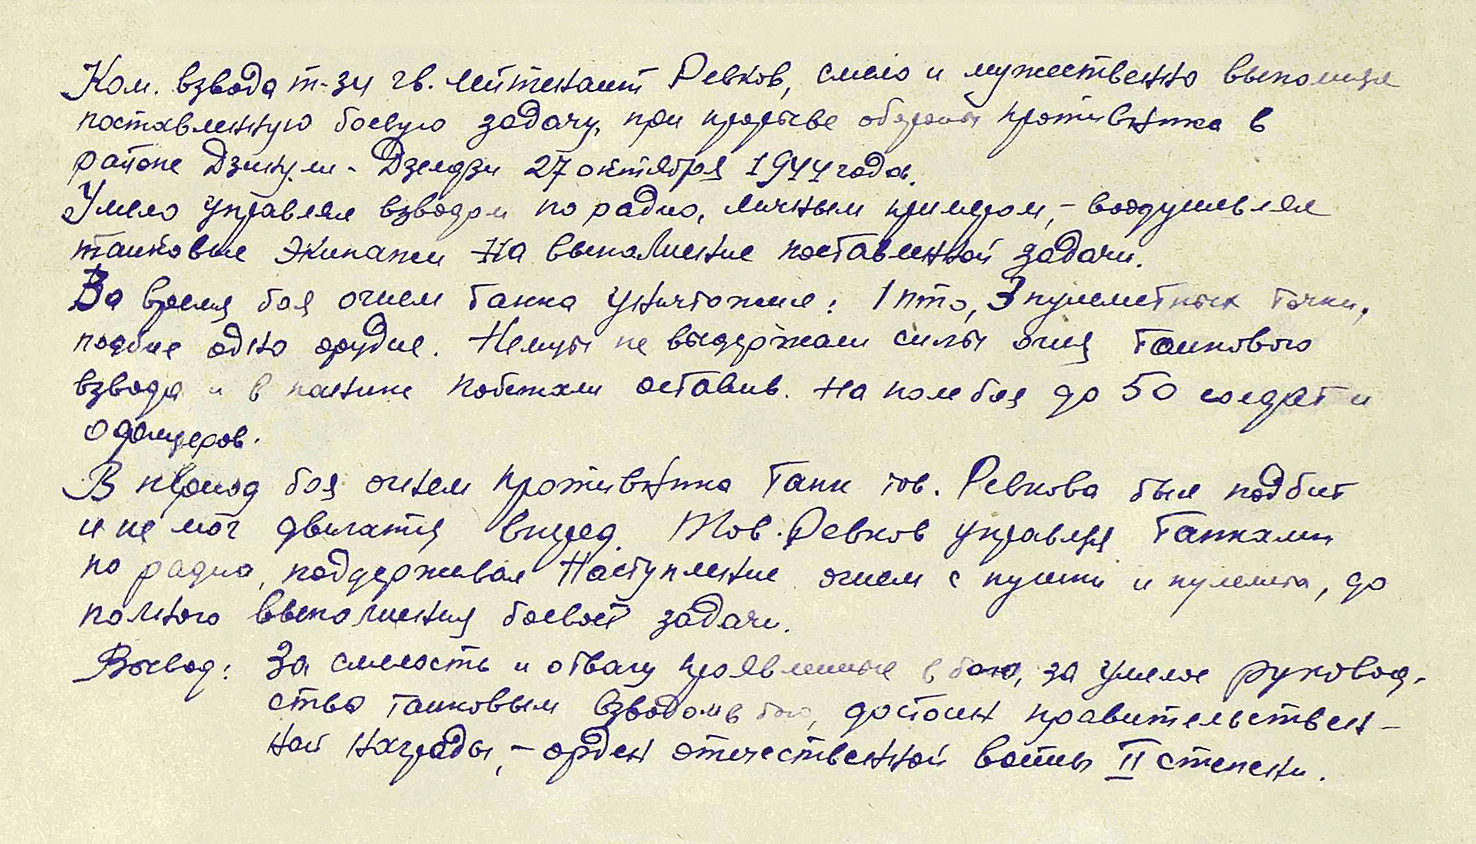 Ком. взвода т-34 гв. лейтенант Ревков, смело и мужественно выполняя
поставленную боевую задачу, при прорыве обороны противника в
районе Дзинули - Дзелдзи 27 октября 1944 года.
Умело управлял взводом по радио, личным примером, - воодушевлял
танковые экипажи на выполнение поставленной задачи.
За время боя огнем танка уничтожил: 1 пто, 3 пулеметных точки,
подбил одно орудие. Немцы не выдержали силы огня танкового
взвода и в панике побежали оставив. на поле боя до 50 солдат и
офицеров.
В период боя огнем противника танк тов. Ревкова был подбит
и не мог двигатя вперед. Тов. Ревков управляя танками
по радио, поддерживал наступление огнем с пушки и пулемета, до
полного выполнения боевой задачи.
Вывод: За смелость и отвагу проявленные в бою, за умелое руковод-
ство танковым взводом в бою, достоин правительствен-
ной награды, - орден отечественной войны II степени.